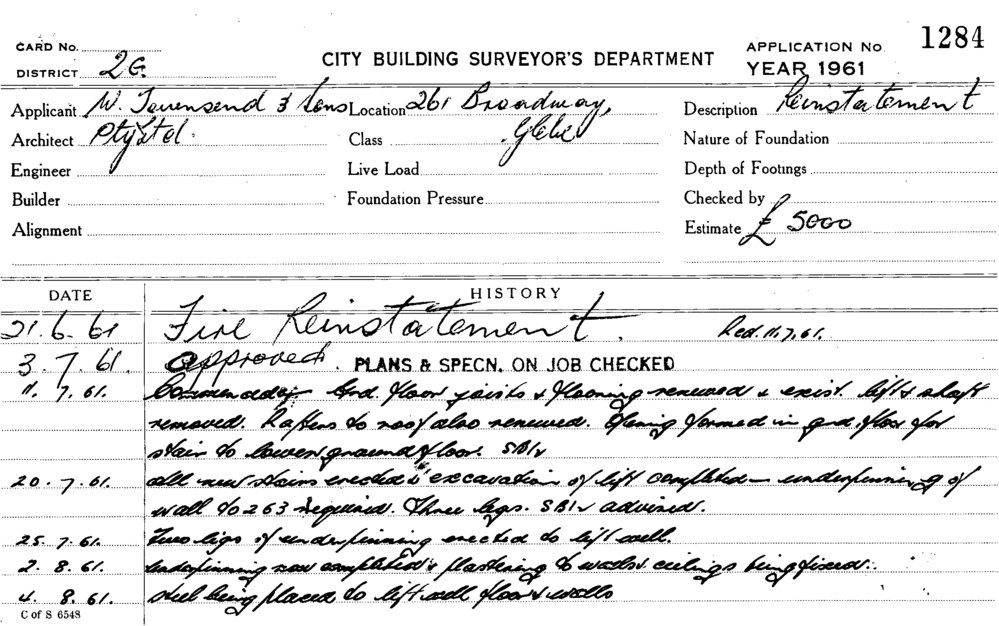 CARD No.
DISTRICT 2G.
CITY BUILDING SURVEYOR'S DEPARTMENT
APPLICATION No. 1284
YEAR 1961
Applicant W. Townsend & Sons Location 261 Broadway, Description Reinstatement
Architect Pty Ltd. Class Glebe Nature of Foundation
Engineer Live Load Depth of Footings
Builder Foundation Pressure Checked by
Alignment Estimate £ 5000
DATE HISTORY
21.6.61 Fire Reinstatement. Red. 11.7.61.
3.7.61. approved. PLANS & SPECN. ON JOB CHECKED
11.7.61. Commenced Grd. floor joists & flooring renewed & exist. lift & shaft
removed. Rafters to roof also renewed. Opening formed in grd. floor for
stair to lower ground floor.
20.7.61. All new stairs erected & excavation of lift completed — underpinning of
wall to 263 required. Three legs. advised.
25.7.61. Two legs of underpinning erected to lift well.
2.8.61. Underpinning now completed & plastering to walls & ceilings being fixed.
4.8.61. Steel being placed to lift well floor & walls
C of S 6548